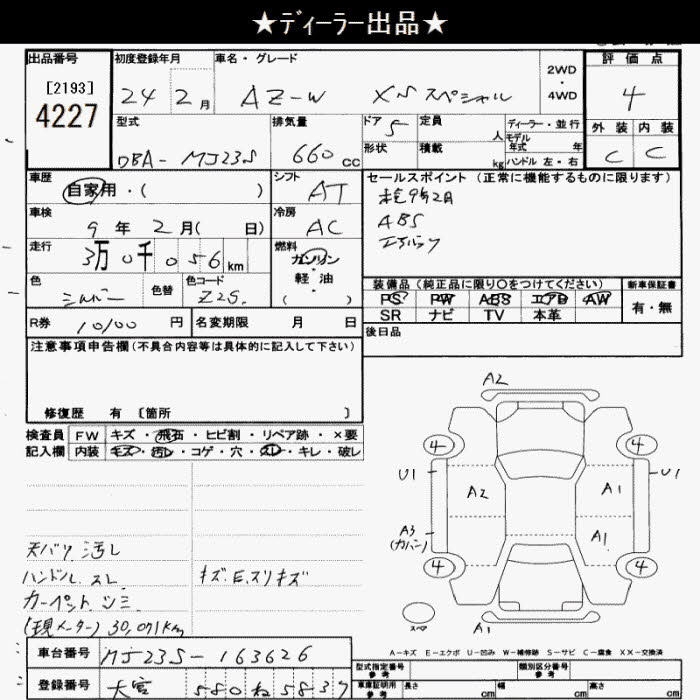 ★ディーラー出品★
出品番号 初度登録年月 車名・グレード 2WD・4WD 評価点
[2193]
4227
24年 2月 AZ-W XSスペシャル 4
型式 排気量 ドア 5 定員 人 ディーラー・並行
モデル年式 年式 外装 内装
DBA-MJ23S 660cc 形状 積載 kg ハンドル 左・右 C C
車歴 シフト セールスポイント (正常に機能するものに限ります)
自家用・( ) AT
車検 冷房 ABS
9年 2月( 日) AC エアバッグ
走行 燃料
3万0千056km ガソリン
軽・油
( )
色 色替 色コード 装備品 (純正品に限り○をつけてください) 新車保証書
シルバー Z2S. PS PW ABS エアB AW 有・無
SR ナビ TV 本革
R券 10100円 名変期限 月 日 後日品
注意事項申告欄(不具合内容等は具体的に記入して下さい)
修復歴 有〔箇所 〕
検査員 FW キズ・飛石・ヒビ割・リペア跡・×要
記入欄 内装 キズ・汚レ・コゲ・穴・スレ・キレ・破レ
A2
4 4
U1 U1
A2 A1
A3 A1
(カバン)
4 4
スペア
A1
天バリ汚レ
ハンドルスレ キズ.E.スリキズ
カーペットシミ
(現メーター) 30,071km
A-キズ E-エクボ U-凹み W-補修跡 S-サビ C-腐食 XX-交換済
車台番号 MJ23S-163626
型式指定番号 参考 類別区分番号 参考
登録番号 大宮 580 ね 5837
車庫証明用 参考 長さ cm 幅 cm 高さ cm